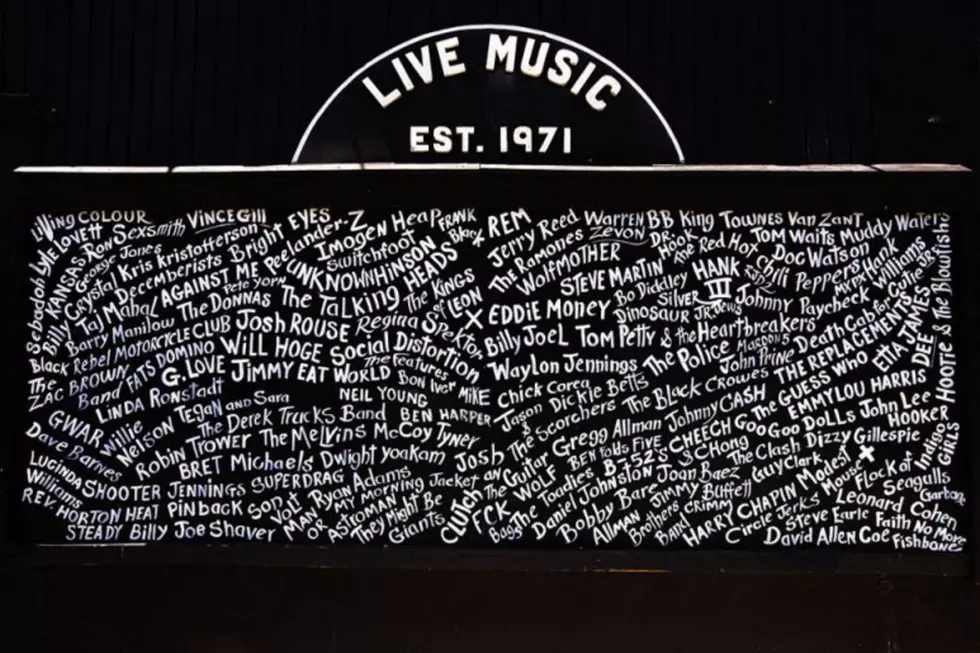 LIVE MUSIC
EST. 1971
LiViNg COLOUR
LYLE LOVETT
Ron Sexsmith
VINCE Gill
EYES
Bright
Peelander-Z
Imogen Heap
FRANK Black
Sebadoh
KANSAS
George Jones
Kris Kristofferson
Switchfoot
UNKNOWN HINSON
Billy
Crystal
Taj Mahal
Decemberists
AGAINST ME
Pete Yorn
The Talking HEADS
The Kings of LEON
Barry Manilow
The DONNAS
Black Rebel MOTORCYCLE CLUB
Josh ROUSE
Regina Spektor
The ZAC BROWN Band
FATS DOMINO
WILL HOGE
Social Distortion
G. LOVE
JIMMY EAT WORLD
The Features
BON Iver
MIKE
LINDA Ronstadt
NEIL YOUNG
GWAR
Willie NELSON
TEGAN and Sara
The Derek Trucks Band
BEN HARPER
Dave Barnes
Robin TROWER
The Melvins
McCoy Tyner
LUCINDA Williams
BRET Michaels
Dwight yoakam
SHOOTER JENNINGS
SUPERDRAG
Ryan Adams
MY MORNING Jacket
REV. HORTON HEAT
PINback
Son Volt
MAN OR ASTROMAN
They Might Be Giants
STEADY
Billy Joe Shaver
REM
Jerry Reed
WARREN ZEVON
BB King
TOWNES Van ZANT
Muddy Waters
The Ramones
DR. Hook
TOM Waits
WOLFMOTHER
The Red Hot Chili Peppers
Doc Watson
STEVE MARTIN
HANK III
Hank Williams
Bo Diddley
EDDIE MONEY
Silver JEWS
Dinosaur JR.
Johnny Paycheck
Death Cab For Cutie
Billy Joel
Tom Petty & the Heartbreakers
MAROON 5
THE REPLACEMENTS
ETTA JAMES
Hootie & the Blowfish
Waylon Jennings
The Police
John Prine
The GUESS WHO
Chick Corea
Dickie Betts
The Black Crowes
EMMYLOU HARRIS
Jason & The Scorchers
Johnny CASH
Goo Goo DOLLS
John Lee HOOKER
Josh
Gregg Allman
CHEECH & CHong
The Clash
Dizzy Gillespie
Indigo GIRLS
Guitar WOLF
BEN Folds FIVE
B-52's
Guy Clark
Modest MOUSE
Flock of Seagulls
Clutch
The Toadies
Joan Baez
Daniel Johnston
Jimmy Buffett
HARRY CHAPIN
Leonard Cohen
Garbage
FCK
Bobby Bare
Circle Jerks
Steve Earle
Faith No More
Allman Brothers Band
David Allen Coe
Fishbone